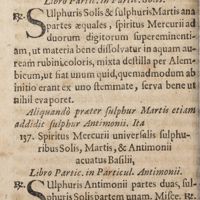 Libro Partic. in Partic. Solis.
132. Sulphuris Solis & sulphuris Martis ana
partes æquales, spiritus Mercurii ad
duorum digitorum supereminenti-
am, ut materia bene dissolvatur in aquam au-
ream rubini coloris, mixta destilla per Alem-
bicum, ut fiat unum quid, quemadmodum ab
initio erant ex uno stemmate, serva bene ut
nihil evaporet.
Aliquando præter sulphur Martis etiam
addidit sulphur Antimonii. Ita
137. Spiritus Mercurii universalis sulphu-
ribus Solis, Martis, & Antimonii
acuatus Basilii,
Libro Partic. in Particul. Antimonii.
132. Sulphuris Antimonii partes duas, sul-
phuris Solis partem unam. Misce. &c.